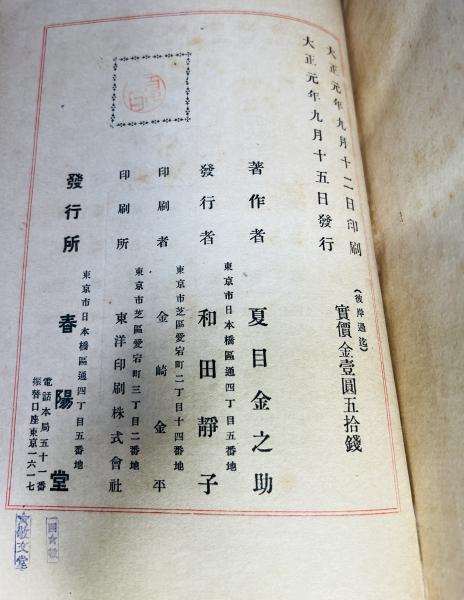 大正元年九月十二日印刷
大正元年九月十五日發行
（彼岸過迄）
實價金壹圓五拾錢
著作者 夏目金之助
東京市日本橋區通四丁目五番地
發行者 和田靜子
東京市芝區愛宕町二丁目十四番地
印刷者 金崎金平
東京市芝區愛宕町三丁目二番地
印刷所 東洋印刷株式會社
東京市日本橋區通四丁目五番地
發行所 春陽堂
電話本局五十一番
振替口座東京一六一七
敬文堂